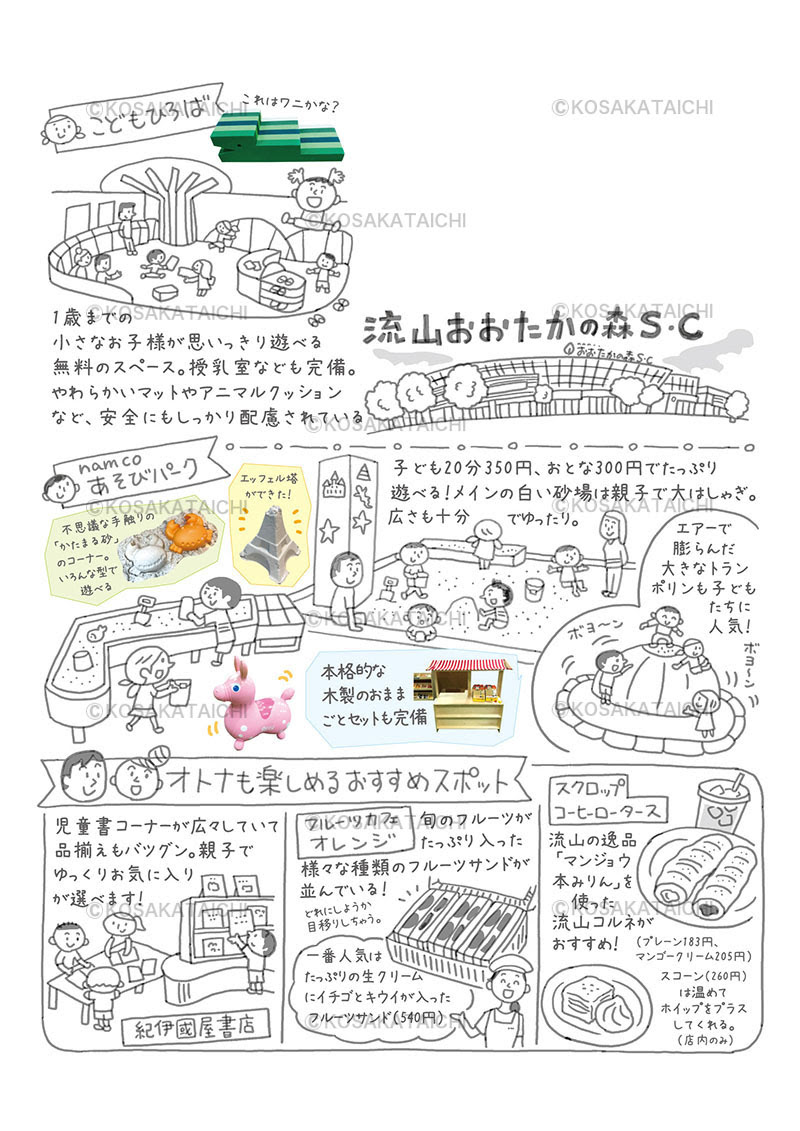 ©KOSAKATAICHI
©KOSAKATAICHI
こどもひろば
これはワニかな？
©KOSAKATAICHI
©KOSAKATAICHI
1歳までの
小さなお子様が思いっきり遊べる
無料のスペース。授乳室なども完備。
やわらかいマットやアニマルクッション
など、安全にもしっかり配慮されている
©KOSAKATAICHI
©KOSAKATAICHI
流山おおたかの森S・C
おおたかの森S・C
©KOSAKATAICHI
namco
あそびパーク
不思議な手触りの
「かたまる砂」
のコーナー。
いろんな型で
遊べる
エッフェル塔
ができた！
子ども20分350円、おとな300円でたっぷり
遊べる！メインの白い砂場は親子で大はしゃぎ。
広さも十分でゆったり。
©KOSAKATAICHI
©KOSAKATAICHI
エアーで
膨らんだ
大きなトラン
ポリンも子ども
たちに
人気！
ボヨ〜ン
ボヨ〜ン
©KOSAKATAICHI
本格的な
木製のおまま
ごとセットも完備
©KOSAKATAICHI
©KOSAKATAICHI
オトナも楽しめるおすすめスポット
児童書コーナーが広々していて
品揃えもバツグン。親子で
ゆっくりお気に入り
が選べます！
紀伊國屋書店
フルーツカフェ
オレンジ
旬のフルーツが
たっぷり入った
様々な種類のフルーツサンドが
並んでいる！
どれにしようか
目移りしちゃう。
一番人気は
たっぷりの生クリーム
にイチゴとキウイが入った
フルーツサンド(540円)
©KOSAKATAICHI
©KOSAKATAICHI
スクロップ
コーヒーロータース
流山の逸品
「マンジョウ
本みりん」を
使った
流山コルネが
おすすめ！
(プレーン183円、
マンゴークリーム205円)
スコーン(260円)
は温めて
ホイップをプラス
してくれる。
(店内のみ)
©KOSAKATAICHI
©KOSAKATAICHI